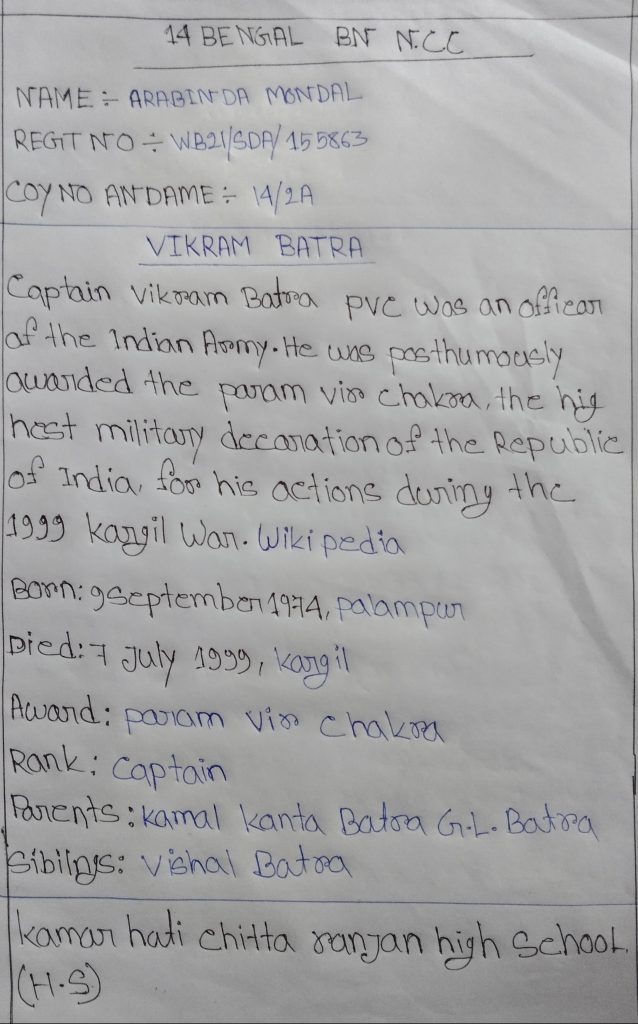 14 BENGAL BN N.C.C
NAME :- ARABINDA MONDAL
REGT NO :- WB21/SDA/155863
COY NO ANDAME :- 14/2A
VIKRAM BATRA
Captain Vikram Batra PVC was an officer
of the Indian Army. He was posthumously
awarded the param vir chakra, the hig
hest military decoration of the Republic
of India, for his actions during the
1999 Kargil War. Wikipedia
Born: 9 September 1974, palampur
Died: 7 July 1999, kargil
Award: param vir chakra
Rank: Captain
Parents: kamal kanta Batra G.L. Batra
Sibilngs: Vishal Batra
kamar hati chitta ranjan high School.
(H.S)